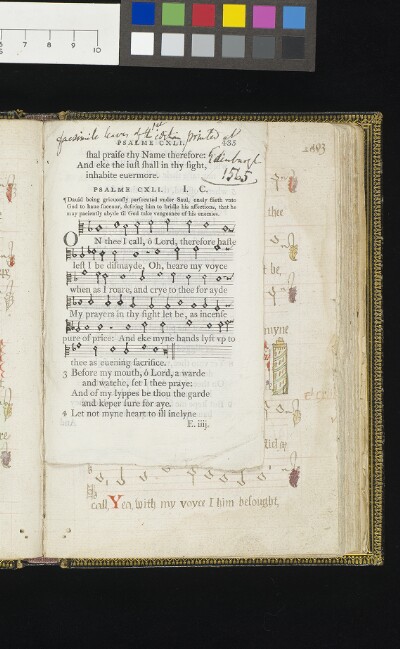 6 7 8 9 10
facsimile leaves of the 1st edition printed at
PSALME CXLI. 233
Edenburgh
shal praise thy Name therefore:
And eke the iust shall in thy sight,
inhabite euermore.
1565
PSALME CXLI. I. C.
¶ Dauid being grieuously persecuted vnder Saul, onely fleeth vnto
God to haue succour, desiring him to bridle his affections, that he
may paciently abyde til God take vengeance of his enemies.
ON thee I call, ô Lord, therefore haste
lest I be dismayde, Oh, heare my voyce
when as I roare, and crye to thee for ayde
My prayers in thy sight let be, as incense
pure of price: And eke myne hands lyft vp to
thee as euening sacrifice.
3 Before my mouth, ô Lord, a warde
and watche, set I thee praye:
And of my lyppes be thou the garde
and keper sure for aye.
4 Let not myne heart to ill inelyne
E. iiij.
thee
be,
myne
call, Yea, with my voyce I him besought,